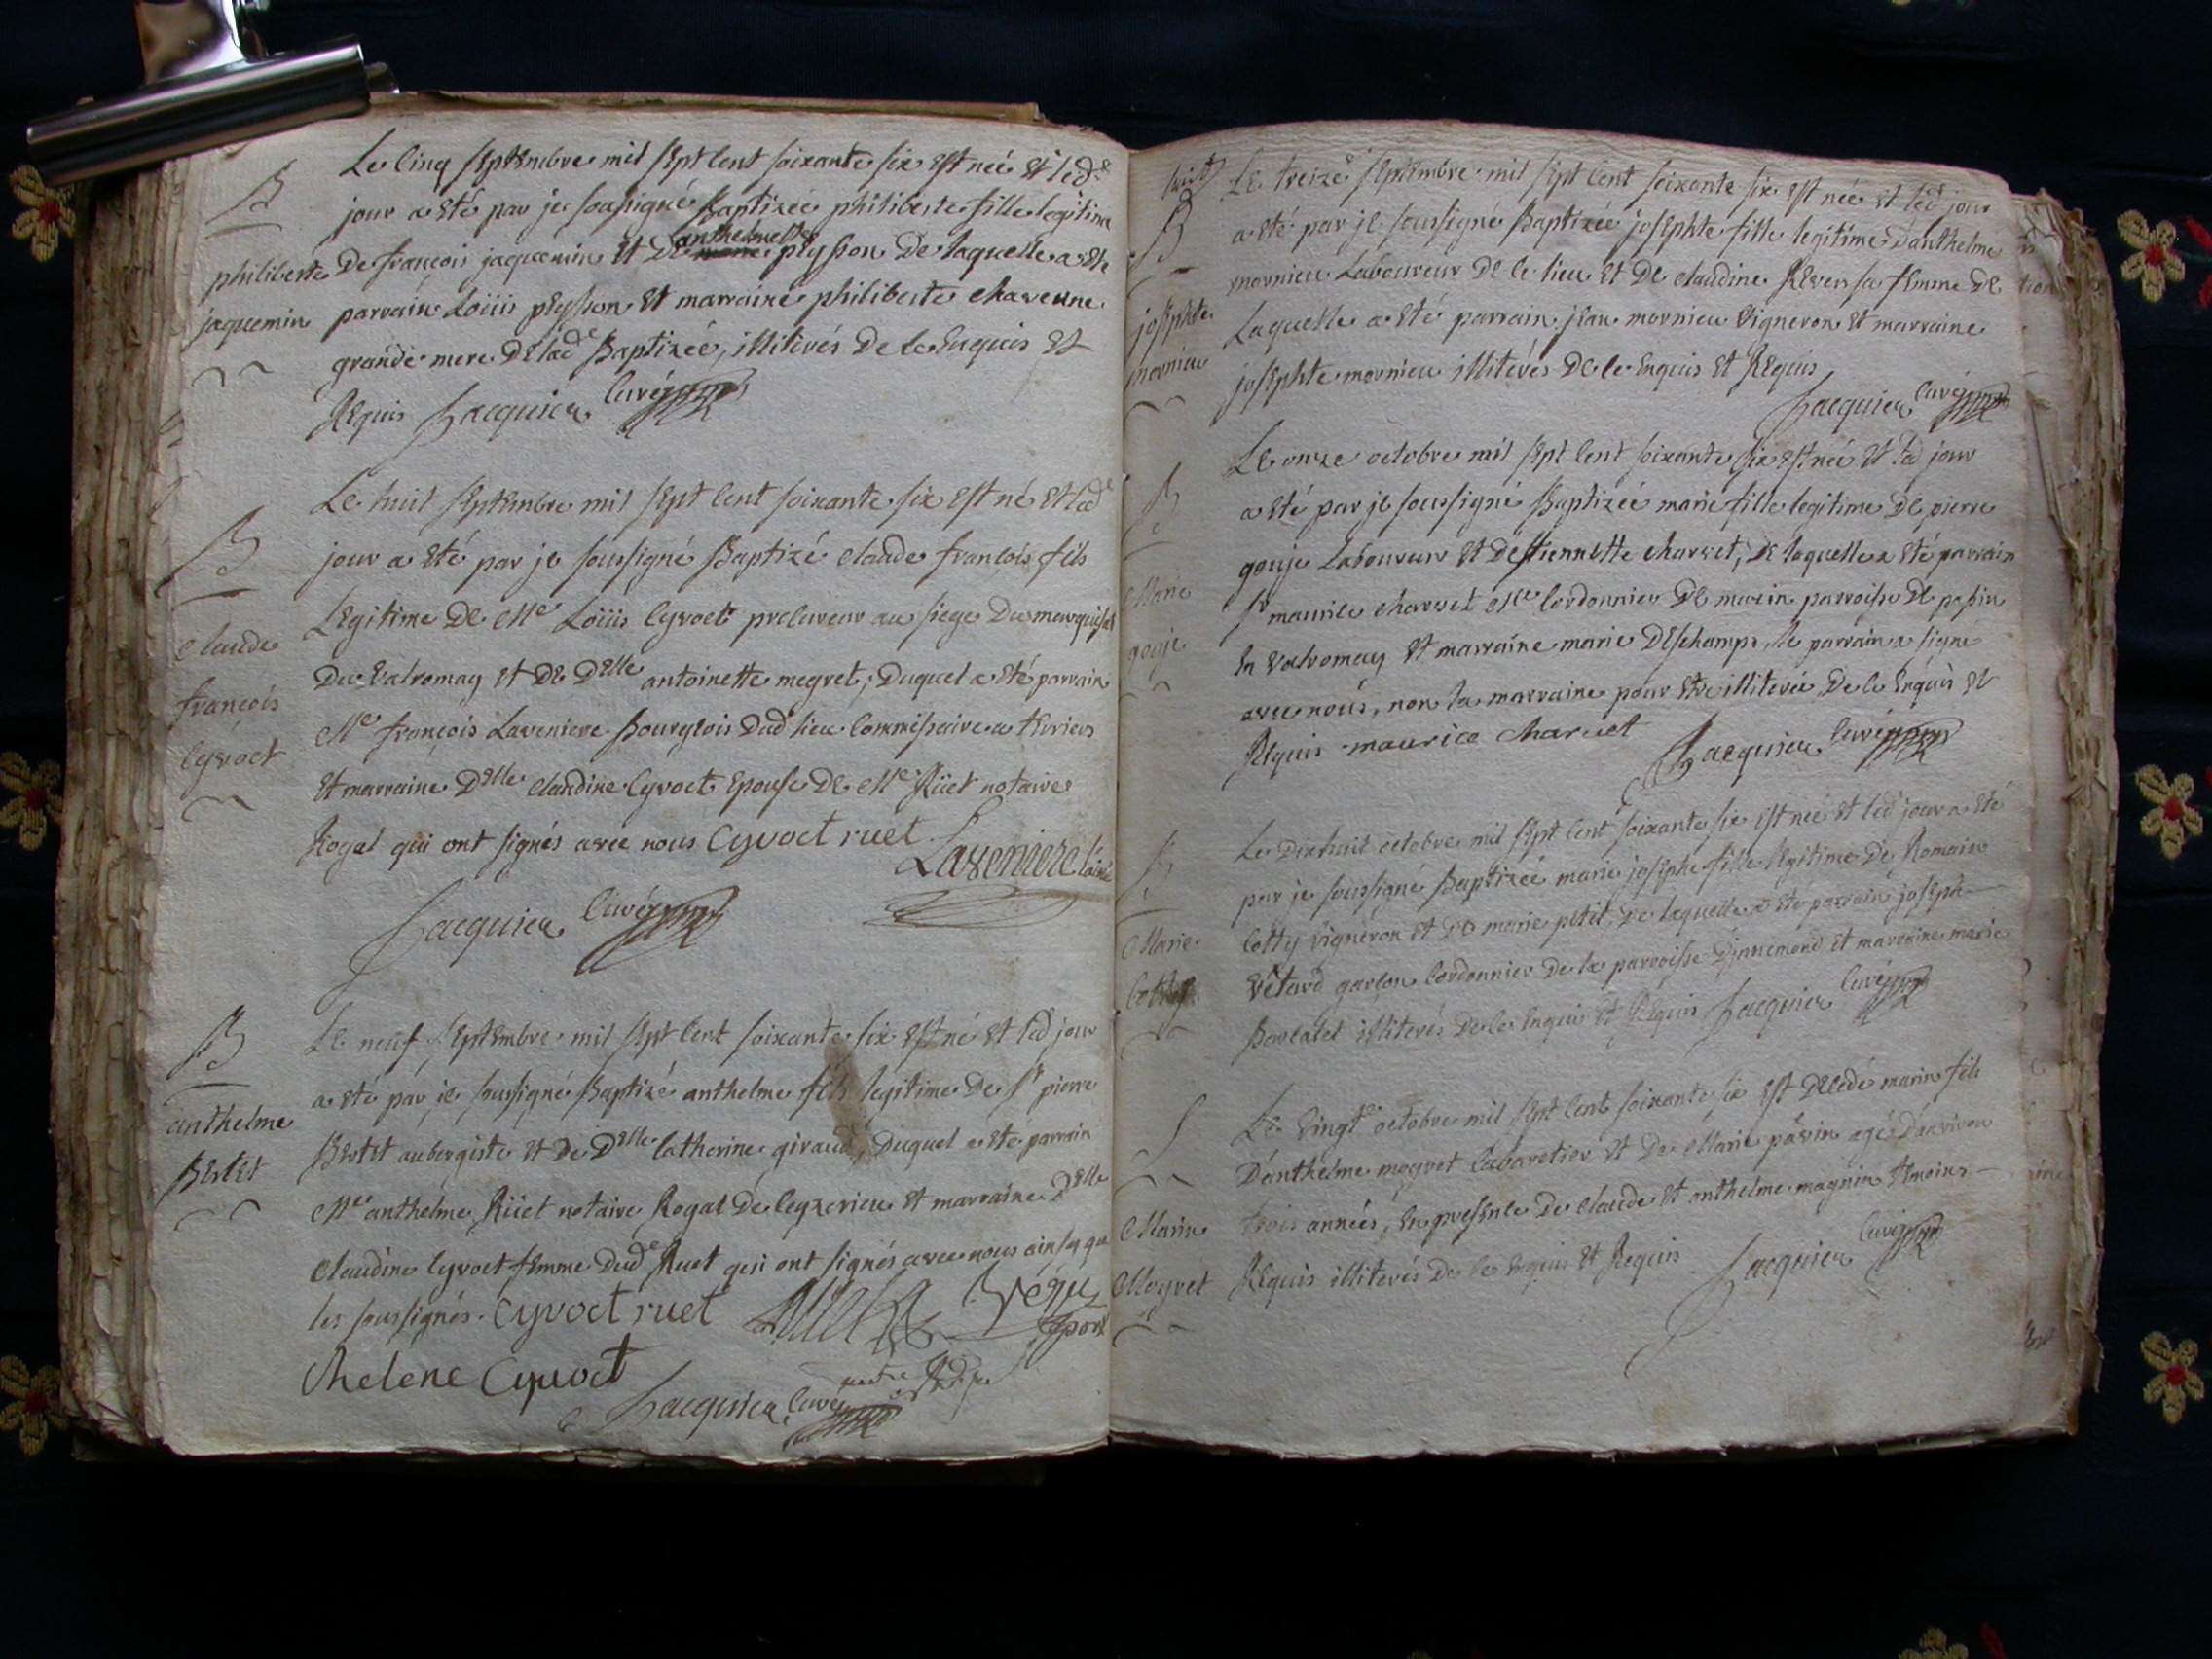 B
philiberte
jaquemin
Le cinq septembre mil sept cent soixante six est née et led.
jour a eté par je soussigné Baptizée philiberte fille legitime
De françois jaquemin et De anthelmette peysson De laquelle a eté
parrain Loüis peysson et marraine philiberte chavenne
grande mere De lad.e Baptizée, illiterés De ce Enquis et
Requis Jacquier Curé
B
claude
françois
Cyvoct
Le huit septembre mil sept cent soixante six est né et led.
jour a eté par je soussigné Baptizé claude françois fils
Legitime De Me Loüis Cyvoct procureur au siege Du marquisat
Du valromay et De Delle antoinette megret; Duquel a eté parrain
Me françois Laveniere Bourgeois Dud lieu Commissaire a terriers
et marraine Delle claudine Cyvoct Epouse De Me Rüet notaire
Royal qui ont signés avec nous Cyvoct ruet
Laveniere
Jacquier Curé
B
anthelme
Bertet
Le neuf septembre mil sept cent soixante six est né et led jour
a eté par je soussigné Baptizé anthelme fils legitime De sr pierre
Bertet aubergiste et De Delle Catherine giraud, Duquel a eté parrain
Me anthelme Rüet notaire Royal De Ceyzerieu et marraine Delle
claudine Cyvoct femme Dud Ruet qui ont signés avec nous ainsy que
les soussignés. Cyvoct ruet
helene Cyvoct
Jacquier Curé
B
josephte
mornieu
Le treize septembre mil sept cent soixante six est née et led jour
a eté par je soussigné Baptizée josephte fille legitime Danthelme
mornieu Laboureur De ce lieu et De claudine Rever sa femme De
Laquelle a eté parrain jean mornieu vigneron et marraine
josephte mornieu illiterés De ce Enquis et Requis
Jacquier Curé
B
Marie
gouje
Le onze octobre mil sept cent soixante six est née et led jour
a eté par je soussigné Baptizée marie fille legitime De pierre
gouje Laboureur et Destiennette charvet, De laquelle a eté parrain
sr maurice charvet Me Cordonnier De parroisse De
En valromay et marraine marie Deschamps, le parrain a signé
avec nous, non la marraine pour etre illiterée De ce Enquis et
Requis maurice charvet Jacquier Curé
B
Marie
Cottey
Le Dixhuit octobre mil sept cent soixante six est née et led jour a eté
par je soussigné Baptizée marie josephe fille legitime De Romain
Cottey vigneron et De marie petit, De laquelle a eté parrain joseph
garçon Cordonnier De la parroisse Dinnemond et marraine marie
illiterés De ce Enquis et Requis Jacquier Curé
S
Marin
Meyret
Le vingt octobre mil sept cent soixante six est Decedé marin fils
Danthelme Cabaretier et De Marie agé Danviron
trois années, En presence De claude et anthelme magnin temoins
Requis illiterés De ce Enquis et Requis Jacquier Curé